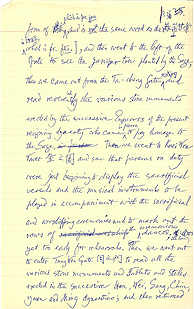 form of and is not the same word as the
what is for ], and then went to the left of the
Gate to see the juniper-tree planted by the Sage.
Then we came out from the Ta-cheng Gate, and
read reverently the various stone monuments
erected by the successive Emperors of the present
reigning dynasty who came to pay homage to
the Sage. Then we went to
Tower and saw that persons on duty
were just beginning to display the sacrificial
vessels and the musical instruments to be
played in accompaniment with the sacrificial
and worshipping ceremonies and to mark out the
rows of dances.
yet too early for rehearsals. Then we went out
to enter Tung Gate to read all the
various stone monuments and tablets and steles
erected in the successive Han, Wei, Sung, Chin,
Yuan and Ming dynasties; and then returned